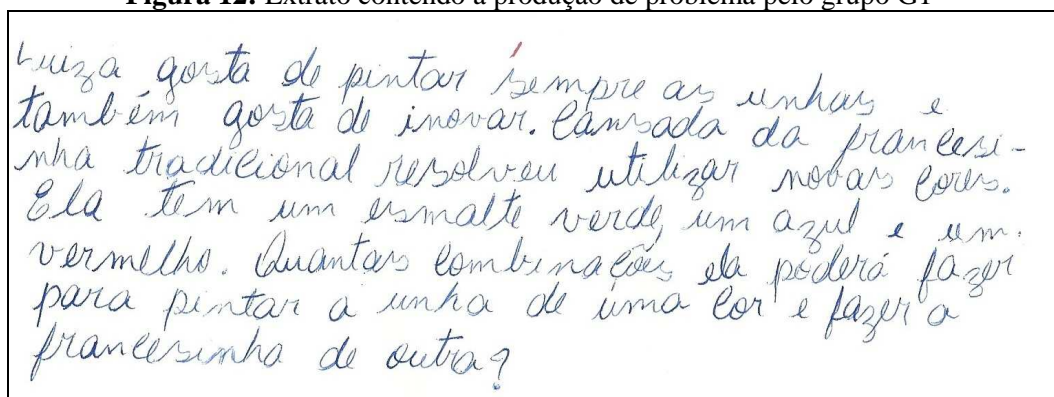 Figura 12: Extrato contendo a produção de problema pelo grupo G1
Luiza gosta de pintar sempre as unhas e
também gosta de inovar. Cansada da francesi-
nha tradicional resolveu utilizar novas cores.
Ela tem um esmalte verde, um azul e um
vermelho. Quantas combinações ela poderá fazer
para pintar a unha de uma cor e fazer a
francesinha de outra?